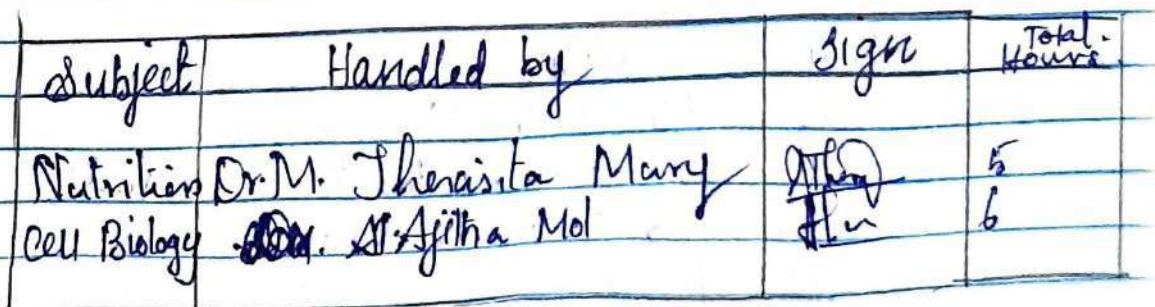 Subject Handled by Sign Total Hours
Nutrition Dr. M. Therasita Mary 5
Cell Biology Ajitha Mol 6